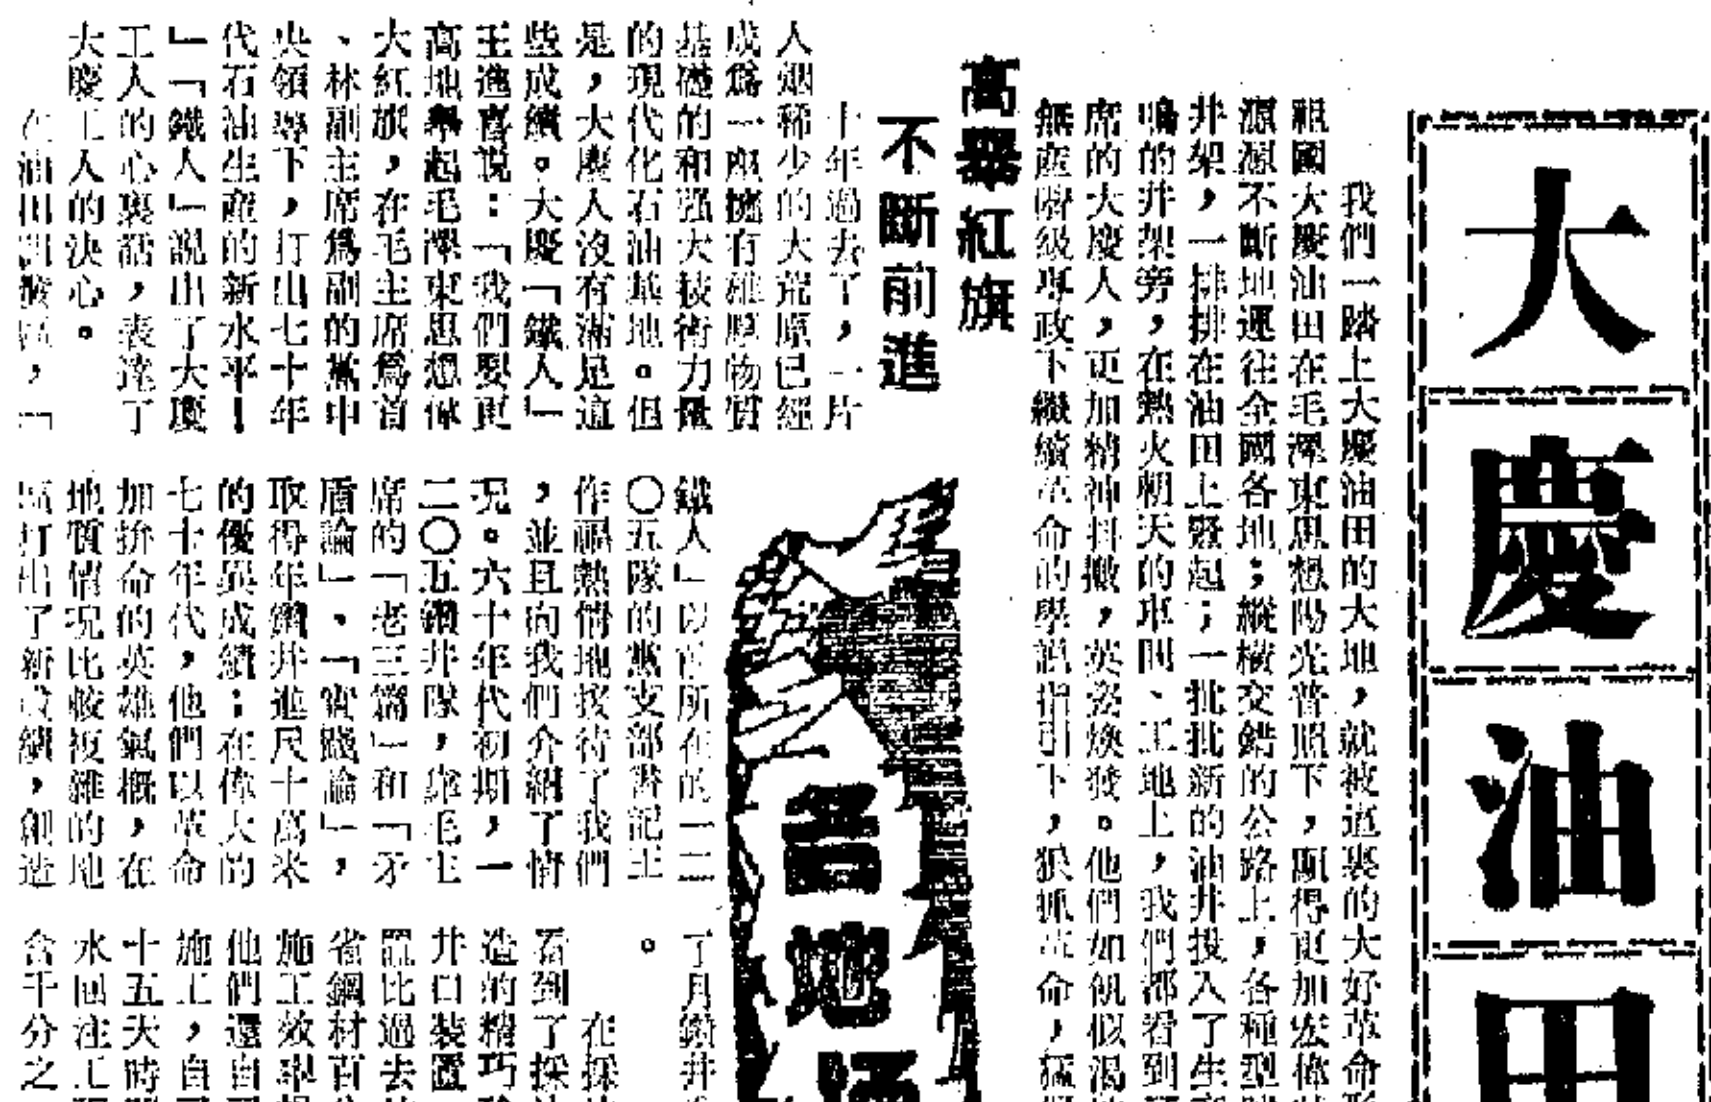 大慶油田
我們一踏上大慶油田的大地，就被這裏的大好革命形
祖國大慶油田在毛澤東思想陽光普照下，顯得更加宏偉
源源不斷地運往全國各地；縱橫交錯的公路上，各種型
井架，一排排在油田上豎起；一批批新的油井投入了生
鳴的井架旁，在熱火朝天的車間、工地上，我們都看到
席的大慶人，更加精神抖擻，英姿煥發。他們如飢似渴
無產階級專政下繼續革命的學說指引下，狠抓革命，猛
高舉紅旗
不斷前進
十年過去了，一片
人烟稀少的大荒原已經
成爲一座擁有雄厚物質
基礎的和强大技術力量
的現代化石油基地。但
是，大慶人沒有滿足這
些成績。大慶「鐵人」
王進喜說：「我們要更
高地舉起毛澤東思想偉
大紅旗，在毛主席爲首
、林副主席爲副的黨中
央領導下，打出七十年
代石油生產的新水平！
」「鐵人」說出了大慶
工人的心裏話，表達了
大慶工人的決心。
在油田區，「
鐵人」以前所在的一二
〇五隊的黨支部書記王
作福熱情地接待了我們
，並且向我們介紹了情
况。六十年代初期，一
二〇五鑽井隊，靠毛主
席的「老三篇」和「矛
盾論」、「實踐論」，
取得年鑽井進尺十萬米
的優異成績；在偉大的
七十年代，他們以革命
加拚命的英雄氣概，在
地質情况比較複雜的地
區打出了新成績，創造
了月鑽井
。
在採
看到了採
造的精巧
井口裝置
比過去
省鋼材百
施工效率
他們還自
施工，自
十五天時
水回注工
含千分之
各地